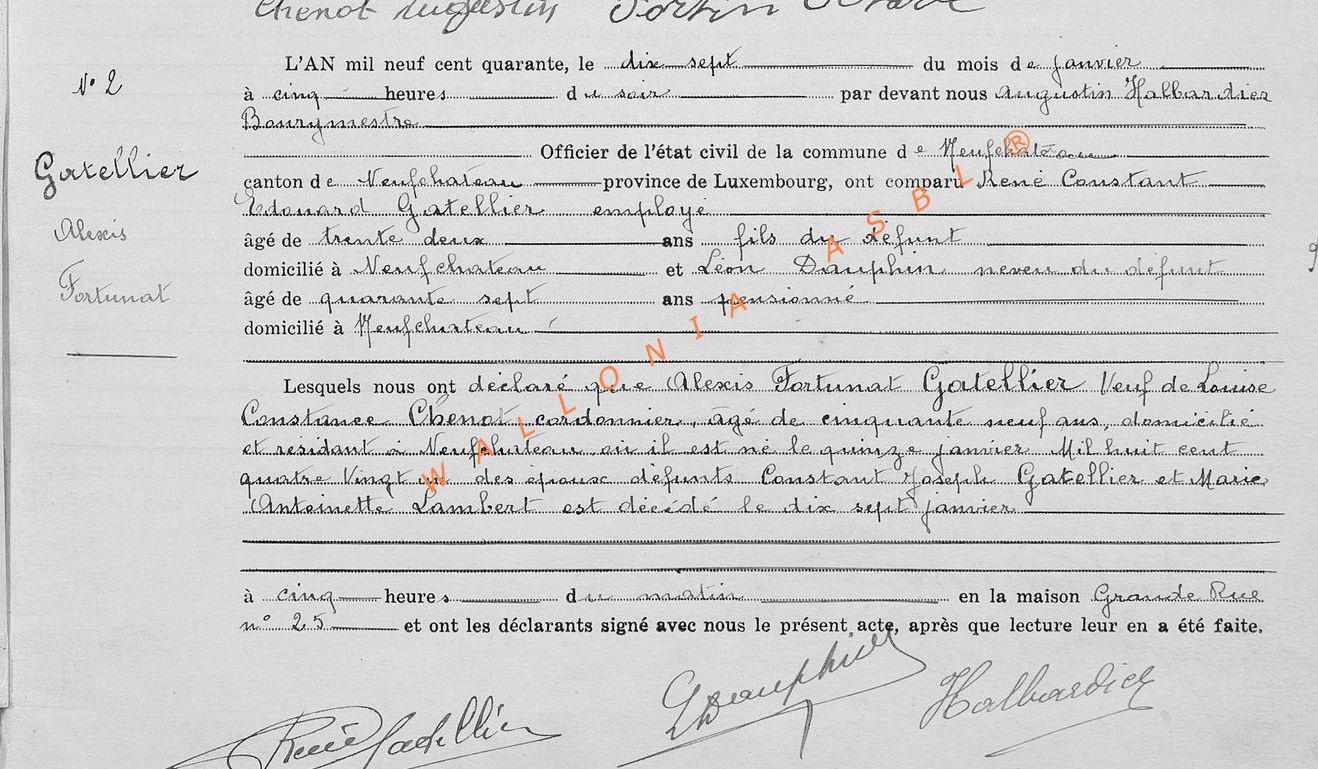 Chenot Augustin
N° 2
Gatellier
Alexis
Fortunat
L'AN mil neuf cent quarante, le dix sept du mois de janvier
à cinq heures du soir par devant nous Augustin Halbardier
Bourgmestre
Officier de l'état civil de la commune de Neufchateau
canton de Neufchateau province de Luxembourg, ont comparu René Constant
Edouard Gatellier employé
âgé de trente deux ans fils du défunt
domicilié à Neufchateau et Léon Dauphin neveu du défunt
âgé de quarante sept ans pensionné
domicilié à Neufchateau
Lesquels nous ont déclaré que Alexis Fortunat Gatellier Veuf de Louise
Constance Chenot, cordonnier, âgé de cinquante neuf ans, domicilié
et résidant à Neufchateau où il est né le quinze janvier Mil huit cent
quatre Vingt un des époux défunts Constant Joseph Gatellier et Marie
Antoinette Lambert est décédé le dix sept janvier
à cinq heures du matin en la maison Grande Rue
n° 25 et ont les déclarants signé avec nous le présent acte, après que lecture leur en a été faite.
René Gatellier LDauphin Halbardier
WALLONIA ASBL ®